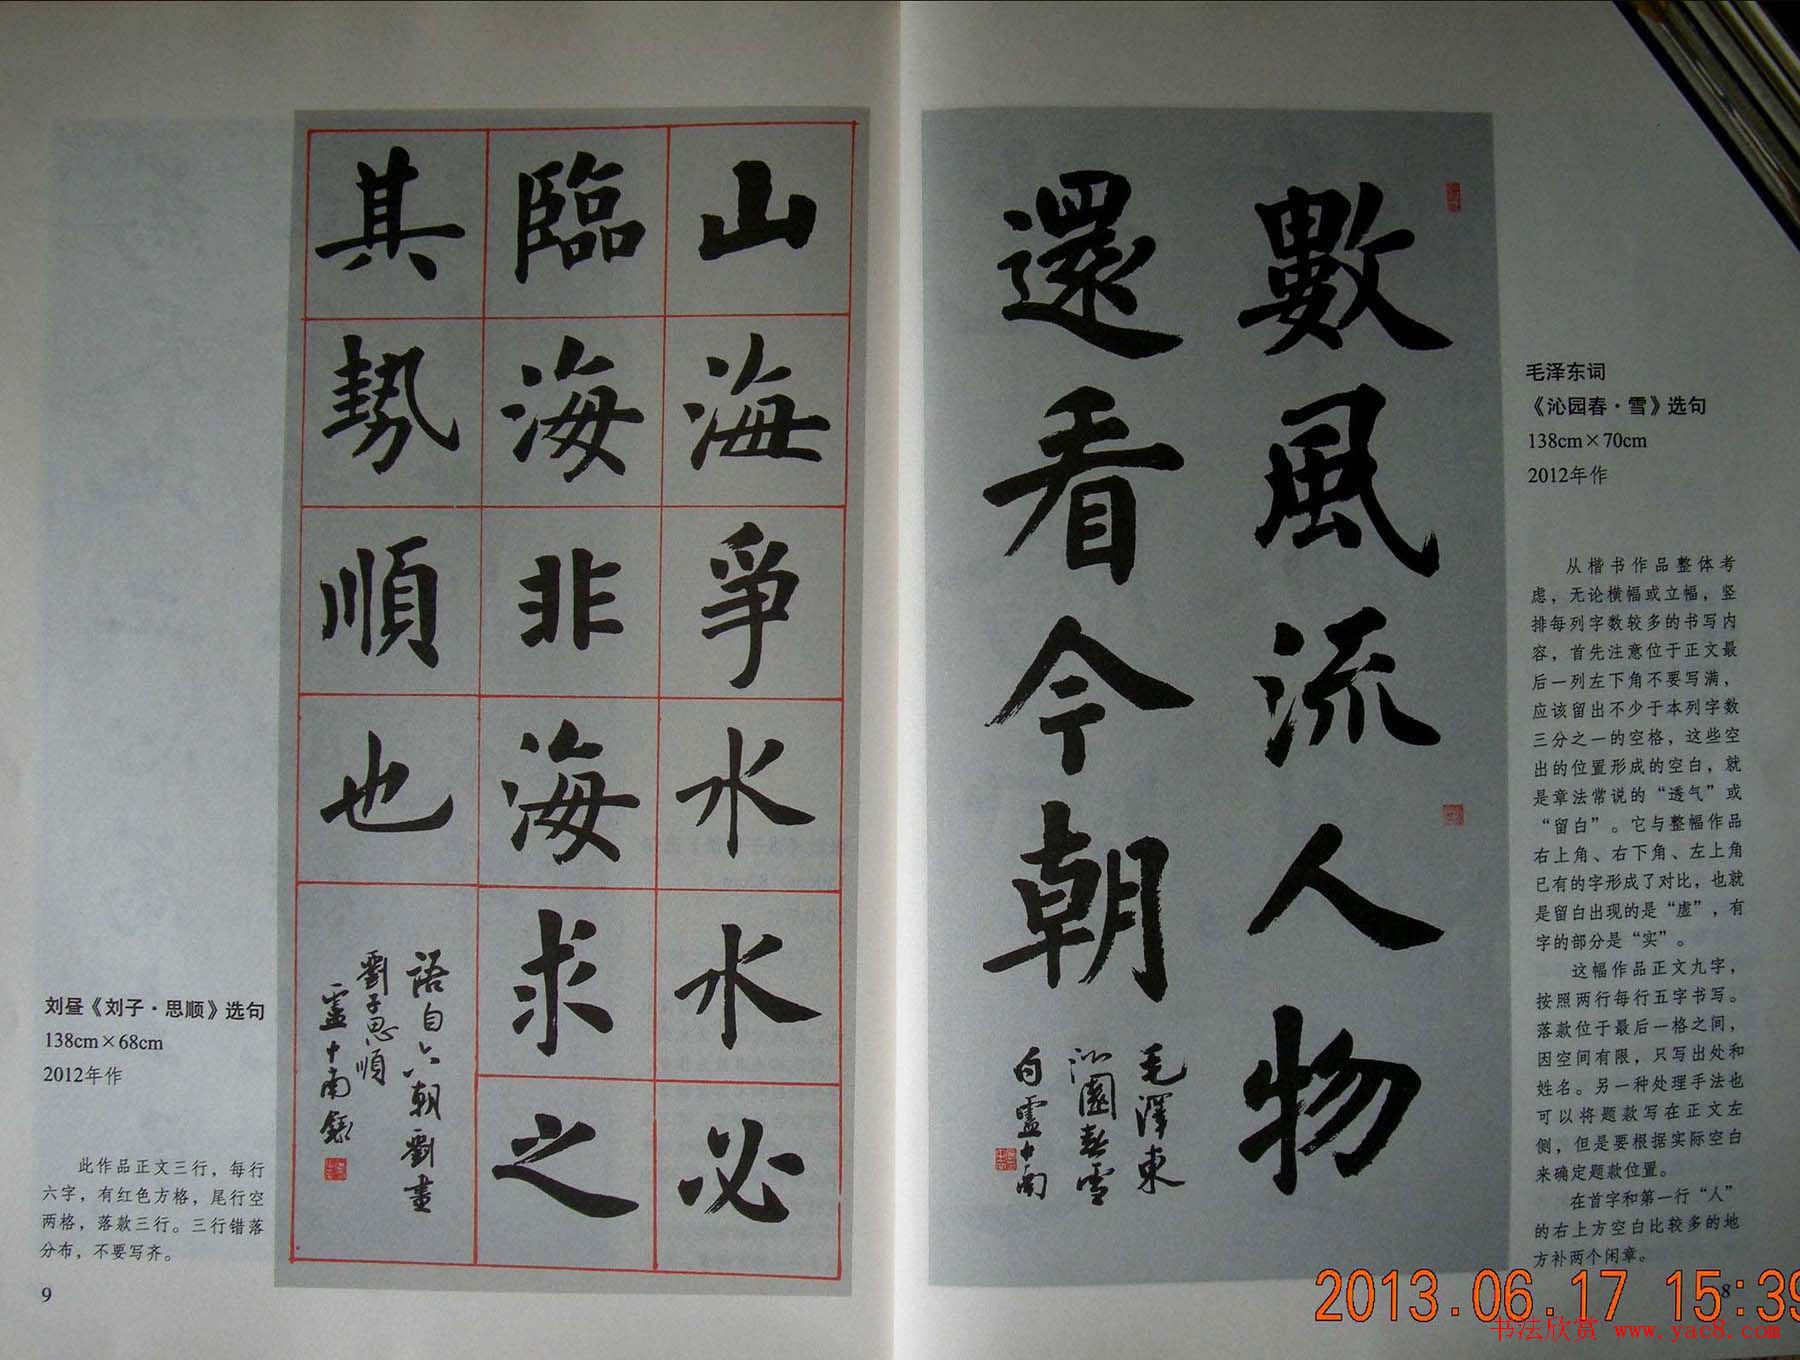 數風流人物
還看今朝
毛澤東
沁園春雪
句盧中南
毛泽东词
《沁园春·雪》选句
138cm×70cm
2012年作
从楷书作品整体考
虑，无论横幅或立幅，竖
排每列字数较多的书写内
容，首先注意位于正文最
后一列左下角不要写满，
应该留出不少于本列字数
三分之一的空格，这些空
出的位置形成的空白，就
是章法常说的“透气”或
“留白”。它与整幅作品
右上角、右下角、左上角
已有的字形成了对比，也就
是留白出现的是“虚”，有
字的部分是“实”。
这幅作品正文九字，
按照两行每行五字书写。
落款位于最后一格之间，
因空间有限，只写出处和
姓名。另一种处理手法也
可以将题款写在正文左
侧，但是要根据实际空白
来确定题款位置。
在首字和第一行“人”
的右上方空白比较多的地
方补两个闲章。
8
山海爭水水必
臨海海非海求之
其勢順也
語自六朝劉晝
劉子思順
盧中南錄
刘昼《刘子·思顺》选句
138cm×68cm
2012年作
此作品正文三行，每行
六字，有红色方格，尾行空
两格，落款三行。三行错落
分布，不要写齐。
9
2013.06.17 15:39
书法欣赏 www.yac8.com